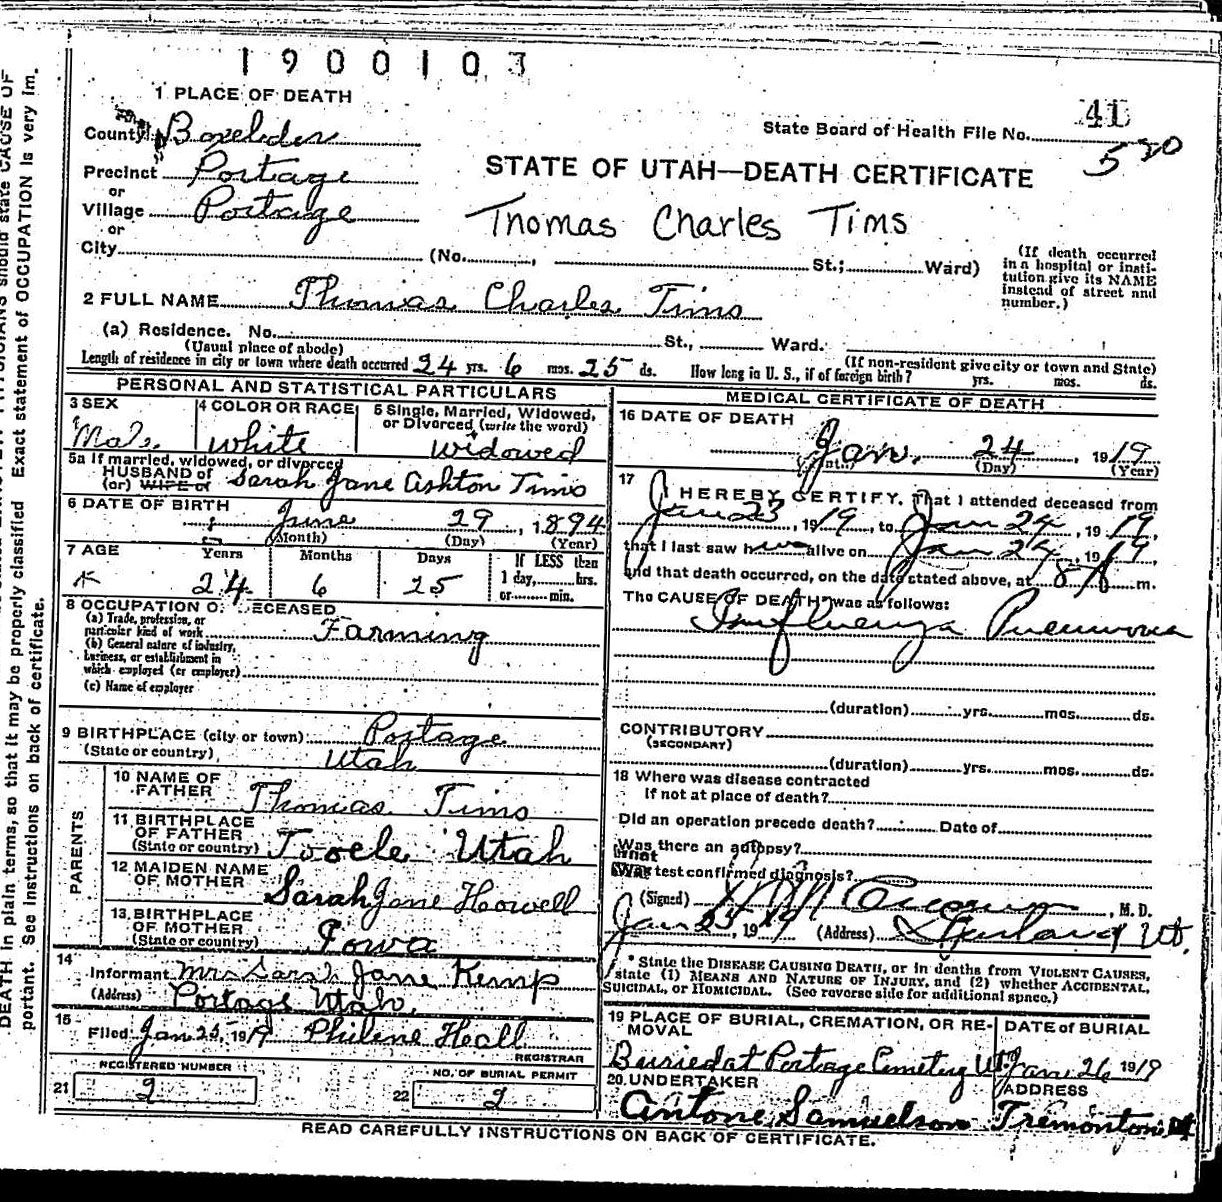 1900103
1 PLACE OF DEATH
41
County Boxelder
State Board of Health File No.
520
Precinct Portage
STATE OF UTAH—DEATH CERTIFICATE
or
Village Portage
Thomas Charles Tims
or
City (No. , St.; Ward)
(If death occurred in a hospital or institution give its NAME instead of street and number.)
2 FULL NAME Thomas Charles Tims
(a) Residence. No. St., Ward.
(Usual place of abode)
(If non-resident give city or town and State)
Length of residence in city or town where death occurred 24 yrs. 6 mos. 25 ds. How long in U. S., if of foreign birth? yrs. mos. ds.
PERSONAL AND STATISTICAL PARTICULARS
3 SEX
Male
4 COLOR OR RACE
White
5 Single, Married, Widowed, or Divorced (write the word)
Widowed
5a If married, widowed, or divorced
HUSBAND of
(or) WIFE of Sarah Jane Ashton Tims
6 DATE OF BIRTH
June 29, 1894
(Month) (Day) (Year)
7 AGE Years Months Days If LESS than
24 6 25 1 day, hrs.
or min.
8 OCCUPATION OF DECEASED
(a) Trade, profession, or
particular kind of work Farming
(b) General nature of industry,
business, or establishment in
which employed (or employer)
(c) Name of employer
9 BIRTHPLACE (city or town) Portage
(State or country) Utah
PARENTS
10 NAME OF
FATHER Thomas Tims
11 BIRTHPLACE
OF FATHER
(State or country) Tooele Utah
12 MAIDEN NAME
OF MOTHER Sarah Jane Howell
13 BIRTHPLACE
OF MOTHER
(State or country) Iowa
14
Informant Mrs Sarah Jane Kemp
(Address) Portage Utah.
15
Filed Jan 25, 1919 Philene Hall
REGISTRAR
REGISTERED NUMBER
21 2
NO. OF BURIAL PERMIT
22 2
MEDICAL CERTIFICATE OF DEATH
16 DATE OF DEATH
Jan. 24, 1919
(Day) (Year)
17
I HEREBY CERTIFY, That I attended deceased from
Jan 23, 1919, to Jan 24, 1919,
that I last saw him alive on Jan 24, 1919,
and that death occurred, on the date stated above, at 8 A m.
The CAUSE OF DEATH* was as follows:
Influenza Pneumonia
(duration) yrs. mos. ds.
CONTRIBUTORY
(SECONDARY)
(duration) yrs. mos. ds.
18 Where was disease contracted
If not at place of death?
Did an operation precede death? Date of
Was there an autopsy?
What test confirmed diagnosis?
(Signed) , M. D.
Jan 25, 1919 (Address) Garland Ut.
* State the DISEASE CAUSING DEATH, or in deaths from VIOLENT CAUSES,
state (1) MEANS AND NATURE OF INJURY, and (2) whether ACCIDENTAL,
SUICIDAL, or HOMICIDAL. (See reverse side for additional space.)
19 PLACE OF BURIAL, CREMATION, OR REMOVAL
Buried at Portage Cemetery Ut.
DATE of BURIAL
Jan 26 1919
20 UNDERTAKER
Antone Samuelson
ADDRESS
Tremonton, Ut
READ CAREFULLY INSTRUCTIONS ON BACK OF CERTIFICATE.
DEATH in plain terms, so that it may be properly classified. Exact statement of OCCUPATION is very im-
portant. See instructions on back of certificate.